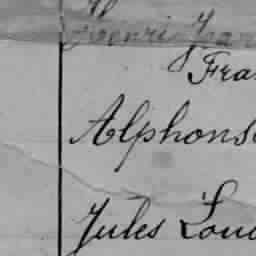 Henri Fran
Fra
Alphons
Jules Lou